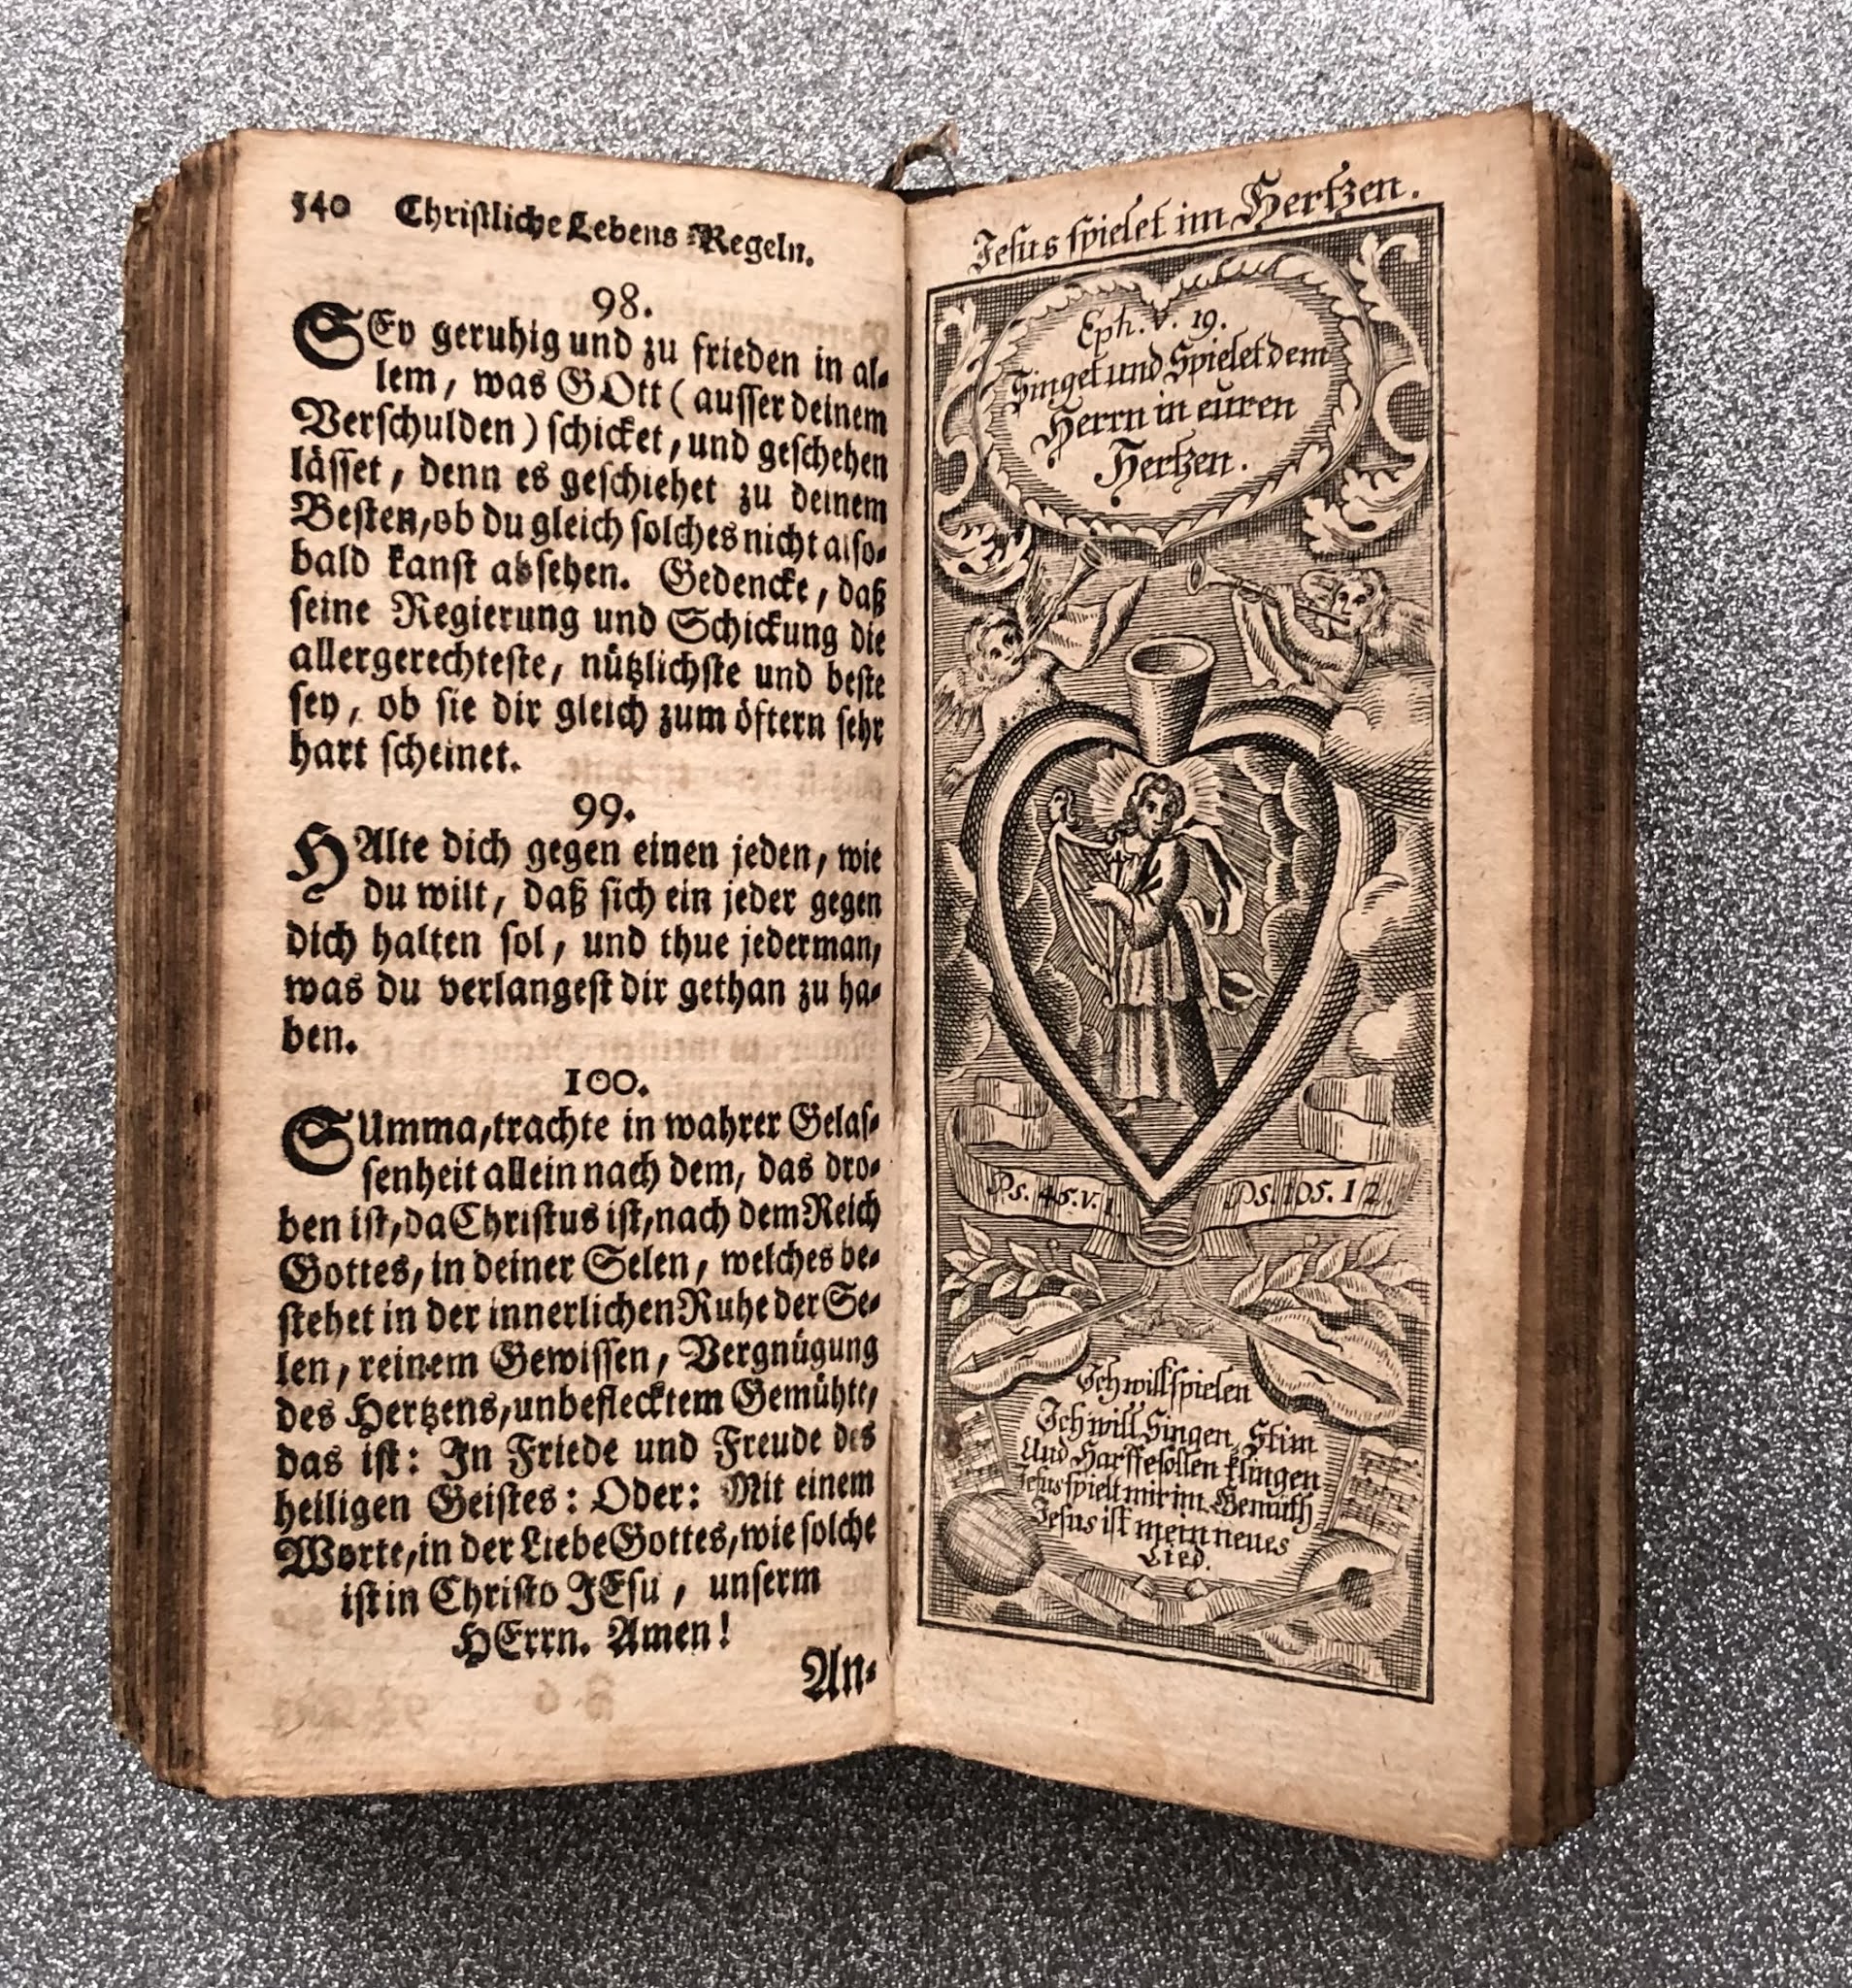 540 Christliche Lebens-Regeln.
98.
SEy geruhig und zu frieden in al-
lem, was GOtt (ausser deinem
Verschulden) schicket, und geschehen
lässet, denn es geschiehet zu deinem
Besten, ob du gleich solches nicht also-
bald kanst absehen. Gedencke, daß
seine Regierung und Schickung die
allergerechteste, nützlichste und beste
sey, ob sie dir gleich zum öftern sehr
hart scheinet.
99.
HAlte dich gegen einen jeden, wie
du wilt, daß sich ein jeder gegen
dich halten sol, und thue jederman,
was du verlangest dir gethan zu ha-
ben.
100.
SUmma, trachte in wahrer Gelas-
senheit allein nach dem, das dro-
ben ist, da Christus ist, nach dem Reich
Gottes, in deiner Selen, welches be-
stehet in der innerlichen Ruhe der Se-
len, reinem Gewissen, Vergnügung
des Hertzens, unbeflecktem Gemühte,
das ist: In Friede und Freude des
heiligen Geistes: Oder: Mit einem
Worte, in der Liebe Gottes, wie solche
ist in Christo JEsu, unserm
HErrn. Amen!
An-
Jesus spielet im Hertzen.
Eph. V. 19.
Singet und Spielet dem
Herrn in euren
Hertzen.
Ps. 45. v. 1 Ps. 105. 1/2
Ich will spielen
Ich will Singen, Stim
Und Harffe sollen klingen
Jesus spielt mir im Gemüth
Jesus ist mein neues
Lied.